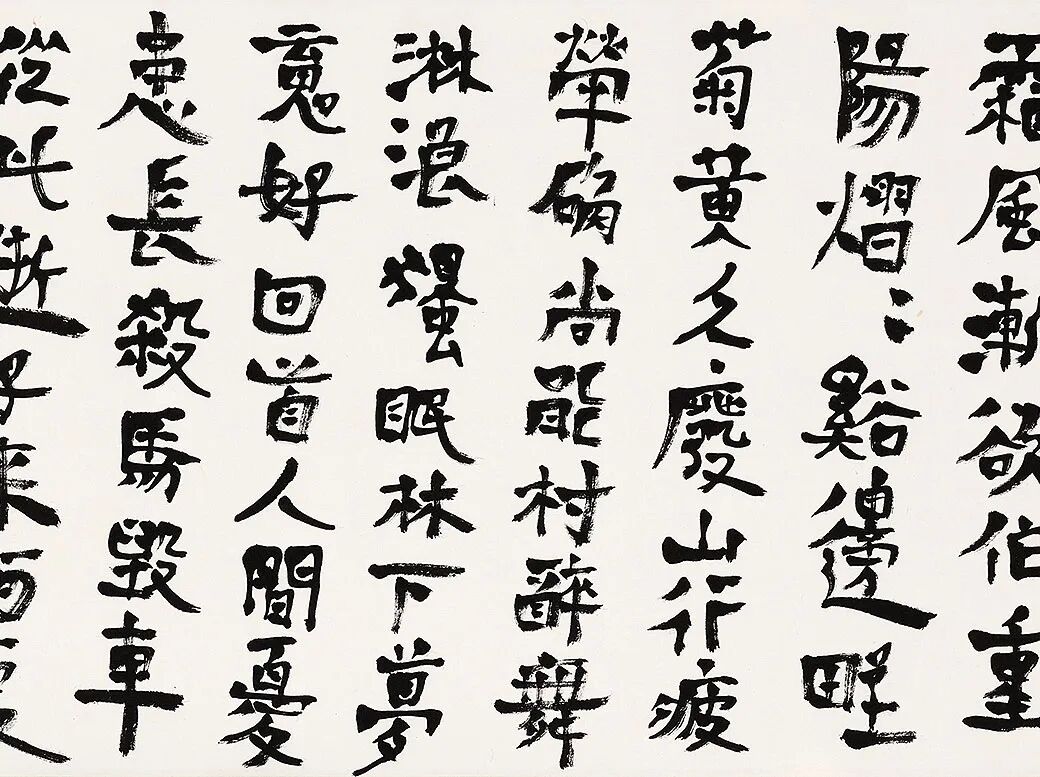 霜風漸欲作重
陽熠〻谿邊野
菊黃久廢山行疲
犖确尚能村醉舞
淋浪獨眠林下夢
䰟好回首人間憂
患長殺馬毀車
從此逝子來